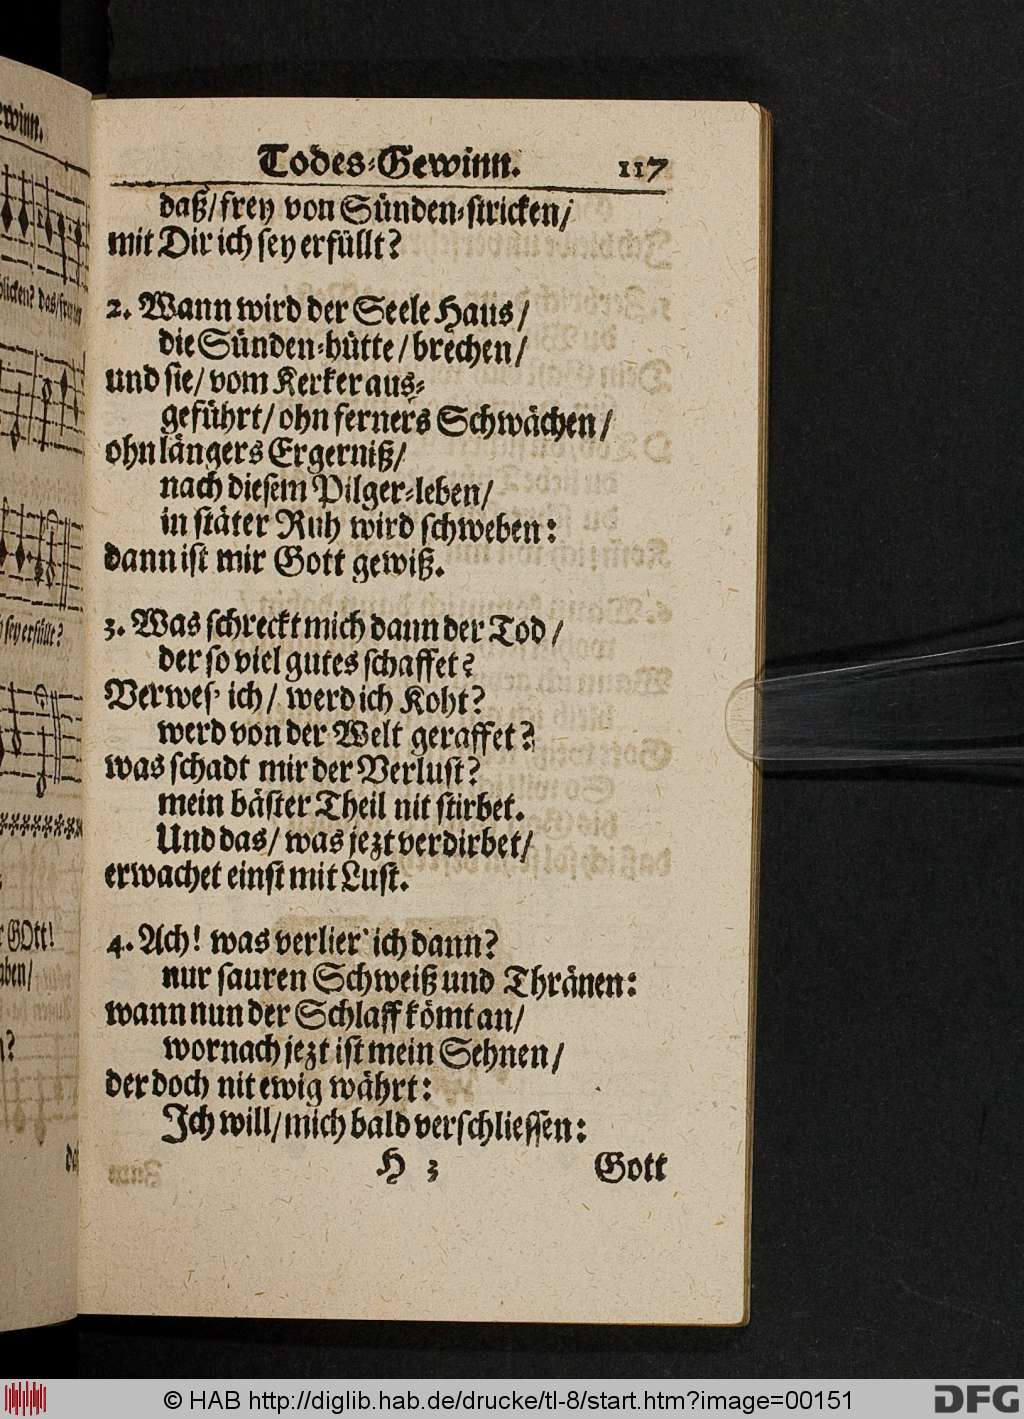 Todes-Gewinn. 117
daß/frey von Sünden-stricken/
mit Dir ich sey erfüllt?
2. Wann wird der Seele Haus/
die Sünden-hütte/brechen/
und sie/vom Kerker aus-
geführt/ohn ferners Schwächen/
ohn längers Ergerniß/
nach diesem Pilger-leben/
in stäter Ruh wird schweben:
dann ist mir Gott gewiß.
3. Was schreckt mich dann der Tod/
der so viel gutes schaffet?
Verwes' ich/ werd ich Koht?
werd von der Welt geraffet?
was schadt mir der Verlust?
mein bäster Theil nit stirbet.
Und das/ was jezt verdirbet/
erwachet einst mit Lust.
4. Ach! was verlier' ich dann?
nur sauren Schweiß und Thränen:
wann nun der Schlaff kömt an/
wornach jezt ist mein Sehnen/
der doch nit ewig währt:
Ich will/mich bald verschliessen:
H 3 Gott
ewinn.
licken? das/frey
sey erfüllt?
GOtt!
aben/
© HAB http://diglib.hab.de/drucke/tl-8/start.htm?image=00151
DFG